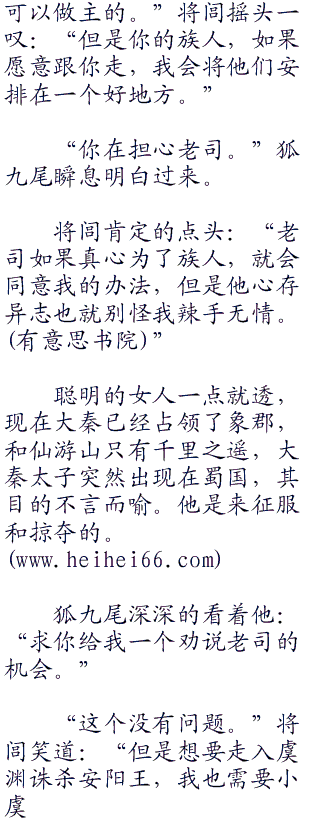 可以做主的。”将闾摇头一
叹：“但是你的族人，如果
愿意跟你走，我会将他们安
排在一个好地方。”
“你在担心老司。”狐
九尾瞬息明白过来。
将闾肯定的点头：“老
司如果真心为了族人，就会
同意我的办法，但是他心存
异志也就别怪我辣手无情。
(有意思书院)”
聪明的女人一点就透，
现在大秦已经占领了象郡，
和仙游山只有千里之遥，大
秦太子突然出现在蜀国，其
目的不言而喻。他是来征服
和掠夺的。
(www.heihei66.com)
狐九尾深深的看着他：
“求你给我一个劝说老司的
机会。”
“这个没有问题。”将
闾笑道：“但是想要走入虞
渊诛杀安阳王，我也需要小
虞